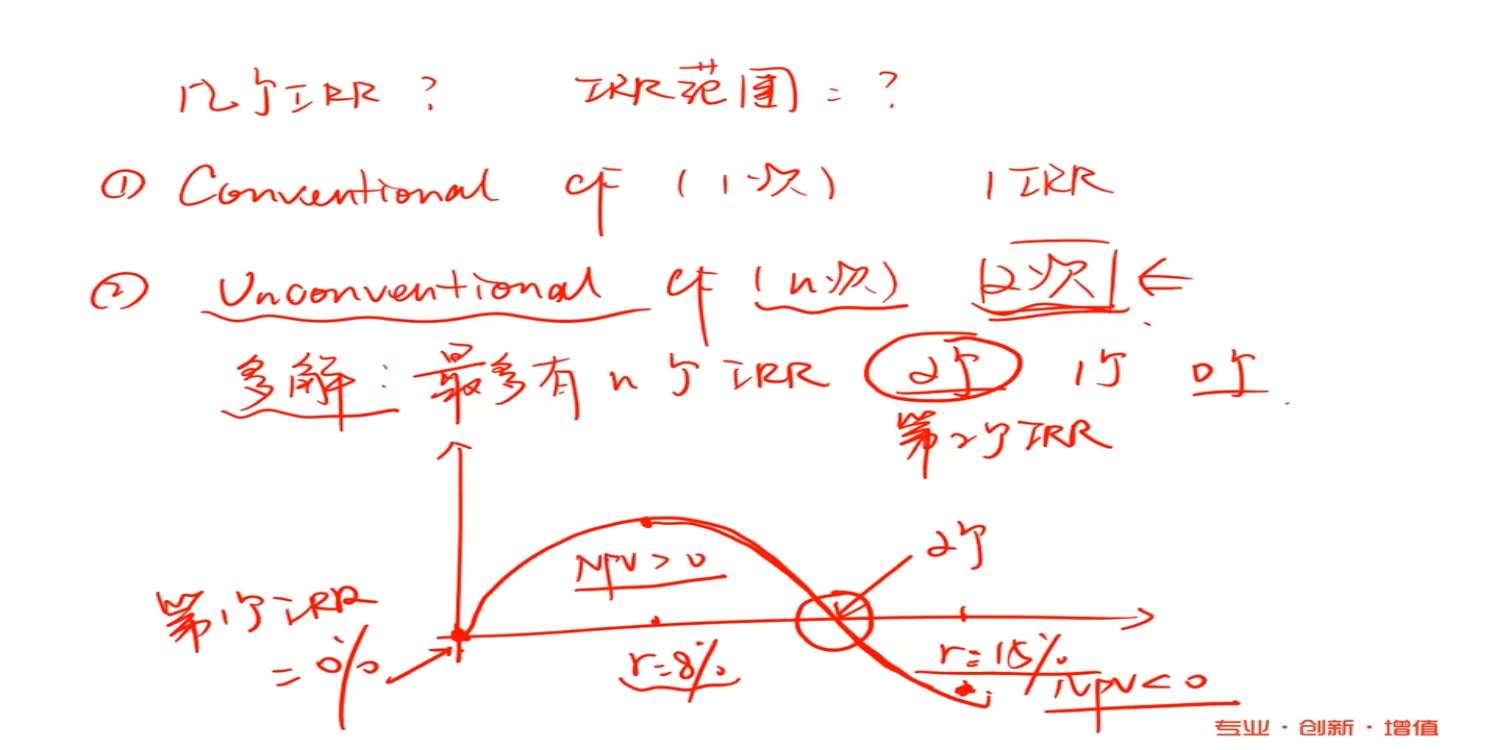 几个IRR? IRR范围=?
① Conventional CF (1次) 1 IRR
② Unconventional CF (n次) 2次 ←
多解: 最多有n个IRR 2个 1个 0个
第2个IRR
2个
NPV>0
第1个IRR
=0%
r=8%
r=15%
NPV<0
专业·创新·增值